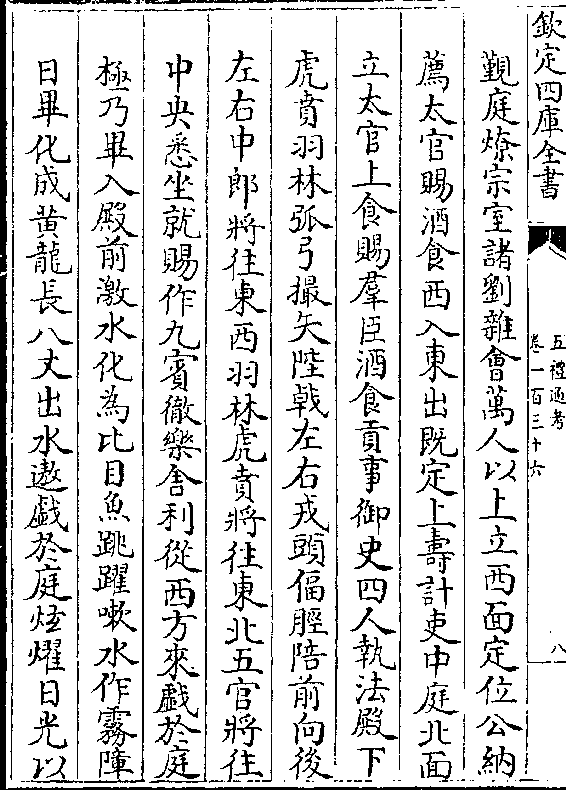 欽定四庫全書
五禮通考
卷一百三十六
八
覲庭燎宗室諸劉雜會萬人以上立西面定位公納
薦太官賜酒食西入東出既定上壽計吏中庭北面
立太官上食賜羣臣酒食貢事御史四人執法殿下
虎賁羽林弧弓撮矢陛戟左右戎頭偪脛陪前向後
左右中郎將往東西羽林虎賁將往東北五官將往
中央悉坐就賜作九賓徹樂舍利從西方來戲於庭
極乃畢入殿前激水化為比目魚跳躍嗽水作霧障
日畢化成黃龍長八丈出水遨戲於庭炫燿日光以